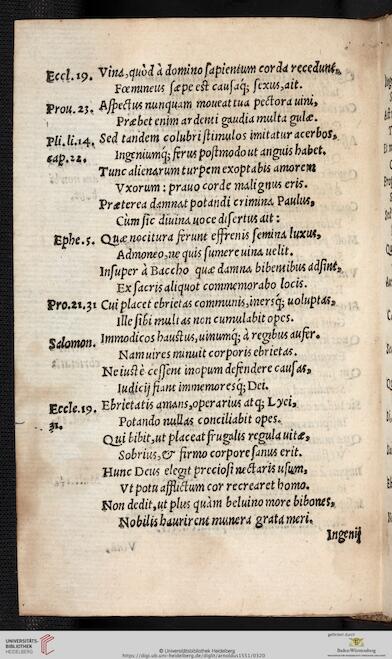 Eccl. 19. Vina, quòd à domino sapientum corda recedunt,
Fœmineus sæpe est causaq; sexus, ait.
Prou. 23. Aspectus nunquam moueat tua pectora uini,
Præbet enim ardenti gaudia multa gulæ.
Pli. li. 14. Sed tandem colubri stimulos imitatur acerbos,
cap. 22. Ingeniumq; ferus postmodo ut anguis habet.
Tunc alienarum turpem exoptabis amorem
Vxorum: prauo corde malignus eris.
Præterea damnat potandi crimina Paulus,
Cùm sic diuina uoce disertus ait:
Ephe. 5. Quæ nocitura ferunt effrenis semina luxus,
Admoneo, ne quis sumere uina uelit.
Insuper à Baccho quæ damna bibentibus adsint,
Ex sacris aliquot commemorabo locis.
Pro. 21. 31 Cui placet ebrietas communis, inersq; uoluptas,
Ille sibi multas non cumulabit opes.
Salomon. Immodicos haustus, uinumq; à regibus aufer.
Nam uires minuit corporis ebrietas.
Ne iustè cessent inopum defendere causas,
Iudicij fiant immemoresq; Dei.
Eccle. 19. Ebrietatis amans, operarius atq; Lyei,
31. Potando nullas conciliabit opes.
Qui bibit, ut placeat frugalis regula uitæ,
Sobrius, & firmo corpore sanus erit.
Hunc Deus elegit preciosi nectaris usum,
Vt potu afflictum cor recrearet homo.
Non dedit, ut plus quàm beluino more bibones,
Nobilis haurirent munera grata meri.
Ingenij
UNIVERSITÄTS-
BIBLIOTHEK
HEIDELBERG
© Universitätsbibliothek Heidelberg
https://digi.ub.uni-heidelberg.de/diglit/arnoldus1551/0320
gefördert durch
Baden-Württemberg